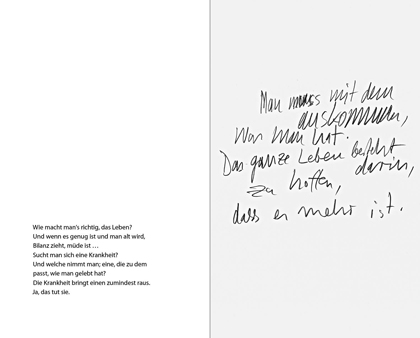 Wie macht man's richtig, das Leben?
Und wenn es genug ist und man alt wird,
Bilanz zieht, müde ist ...
Sucht man sich eine Krankheit?
Und welche nimmt man; eine, die zu dem
passt, wie man gelebt hat?
Die Krankheit bringt einen zumindest raus.
Ja, das tut sie.
Man muss mit dem
auskommen,
Was man hat.
Das ganze Leben besteht
darin,
zu hoffen,
dass er mehr ist.